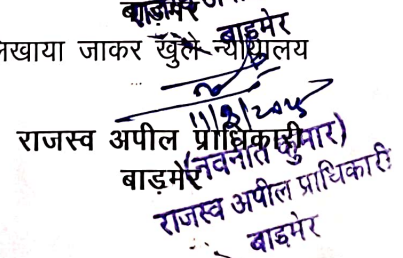 बाड़मेर
बाड़मेर
लिखाया जाकर खुले न्यायालय
राजस्व अपील प्राधिकारी
बाड़मेर
(नवनीत कुमार)
राजस्व अपील प्राधिकारी
बाड़मेर